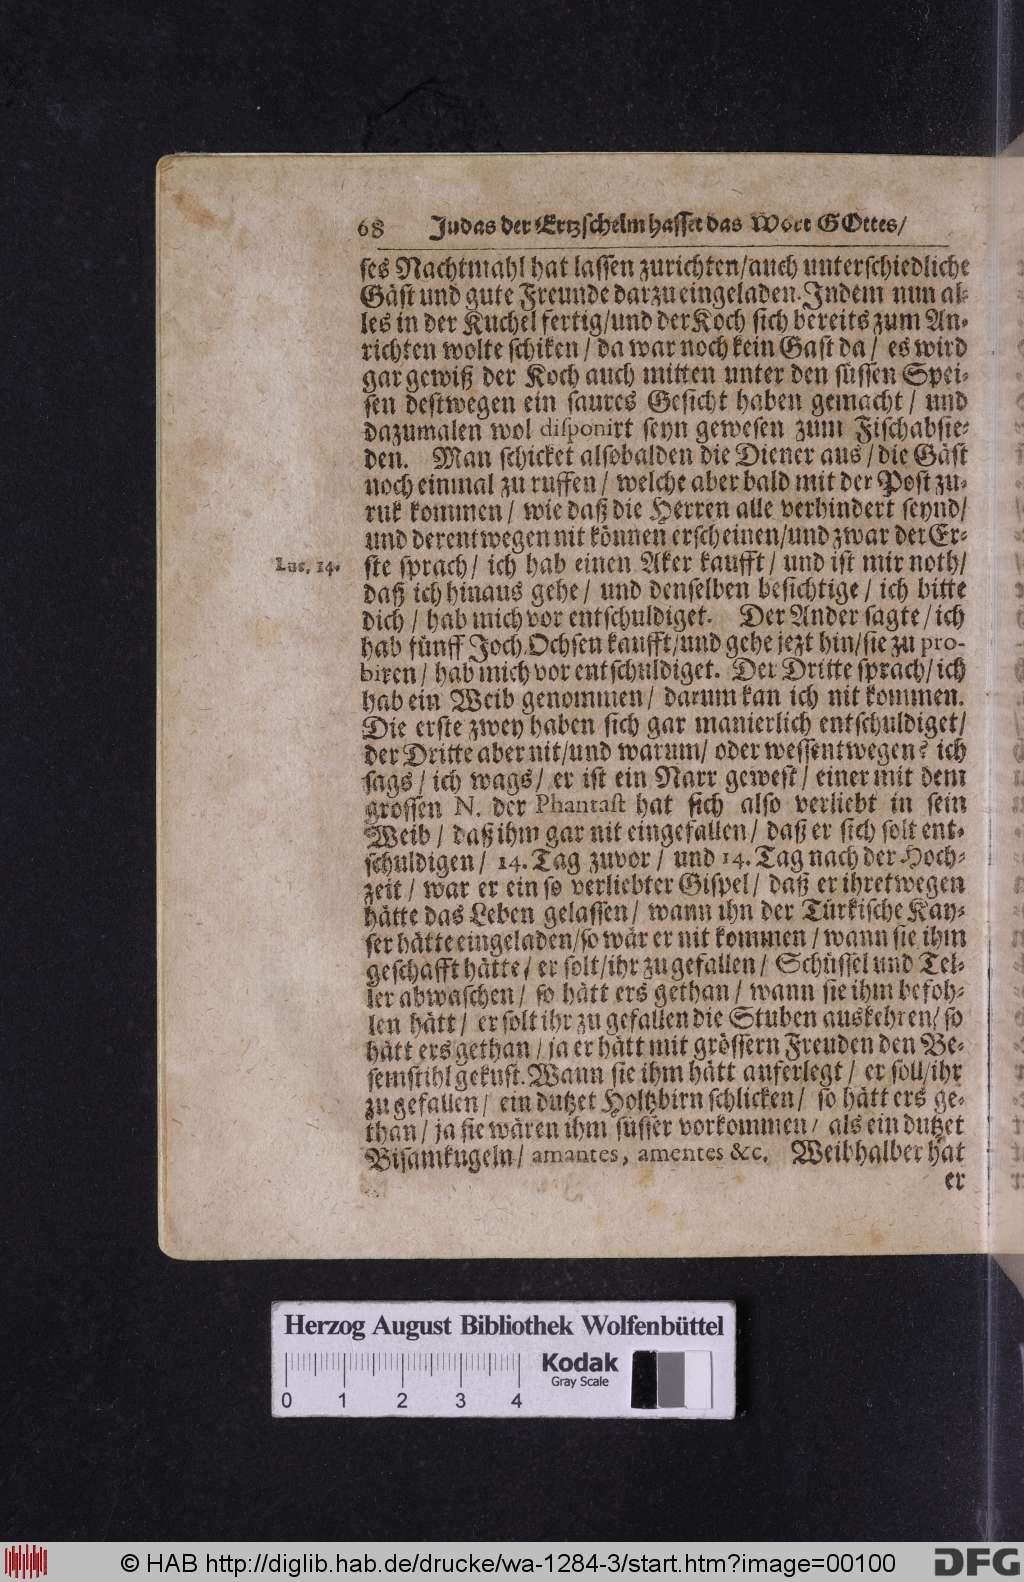 68 Judas der Ertzschelm hasset das Wort GOttes/
ses Nachtmahl hat lassen zurichten/auch unterschiedliche
Gäst und gute Freunde darzu eingeladen. Indem nun al-
les in der Kuchel fertig/und der Koch sich bereits zum An-
richten wolte schiken/ da war noch kein Gast da/ es wird
gar gewiß der Koch auch mitten unter den süssen Spei-
sen destwegen ein saures Gesicht haben gemacht/ und
dazumalen wol disponirt seyn gewesen zum Fischabsie-
den. Man schicket alsobalden die Diener aus/die Gäst
noch einmal zu ruffen/ welche aber bald mit der Post zu-
ruk kommen/ wie daß die Herren alle verhindert seynd/
und derentwegen nit können erscheinen/und zwar der Er-
Luc. 14.
ste sprach/ ich hab einen Aker kaufft/ und ist mir noth/
daß ich hinaus gehe/ und denselben besichtige/ ich bitte
dich/ hab mich vor entschuldiget. Der Ander sagte/ich
hab fünff Joch Ochsen kaufft/und gehe jezt hin/sie zu pro-
biren/ hab mich vor entschuldiget. Der Dritte sprach/ich
hab ein Weib genommen/ darum kan ich nit kommen.
Die erste zwey haben sich gar manierlich entschuldiget/
der Dritte aber nit/und warum/ oder wessentwegen? ich
sags/ ich wags/ er ist ein Narr gewest/ einer mit dem
grossen N. der Phantast hat sich also verliebt in sein
Weib/ daß ihm gar nit eingefallen/ daß er sich solt ent-
schuldigen/ 14. Tag zuvor/ und 14. Tag nach der Hoch-
zeit/ war er ein so verliebter Gispel/ daß er ihretwegen
hätte das Leben gelassen/ wann ihn der Türkische Kay-
ser hätte eingeladen/so wär er nit kommen/ wann sie ihm
geschafft hätte/ er solt/ihr zu gefallen/ Schüssel und Tel-
ler abwaschen/ so hätt ers gethan/ wann sie ihm befoh-
len hätt/ er solt ihr zu gefallen die Stuben auskehren/ so
hätt ers gethan/ ja er hätt mit grössern Freuden den Be-
semstihl gekust. Wann sie ihm hätt auferlegt/ er soll/ihr
zu gefallen/ ein dutzet Holtzbirn schlicken/ so hätt ers ge-
than/ ja sie wären ihm süsser vorkommen/ als ein dutzet
Bisamkugeln/ amantes, amentes &c. Weibhalber hat
er
Herzog August Bibliothek Wolfenbüttel
0 1 2 3 4
Kodak
Gray Scale
© HAB http://diglib.hab.de/drucke/wa-1284-3/start.htm?image=00100
DFG